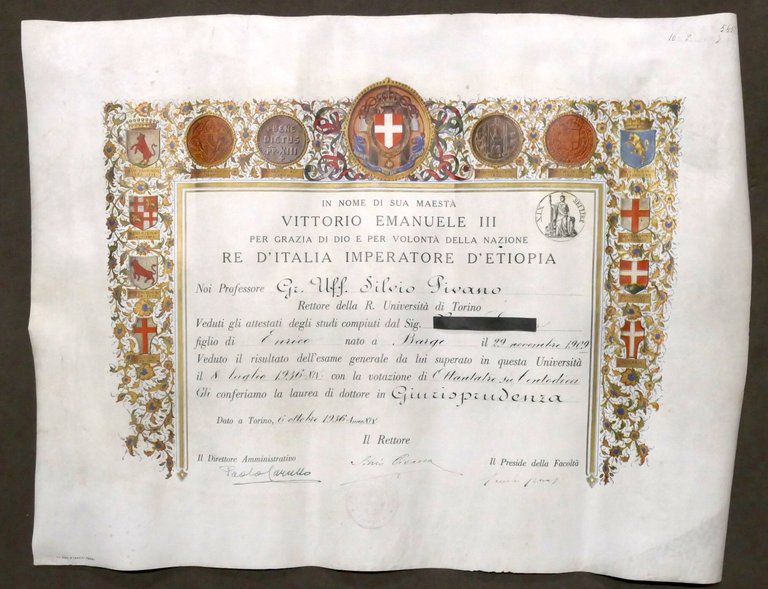 BENE
DICTUS
PP·XIII
IN NOME DI SUA MAESTÀ
VITTORIO EMANUELE III
PER GRAZIA DI DIO E PER VOLONTÀ DELLA NAZIONE
RE D'ITALIA IMPERATORE D'ETIOPIA
Noi Professore Gr. Uff. Silvio Pivano
Rettore della R. Università di Torino
Veduti gli attestati degli studi compiuti dal Sig.
figlio di Enrico nato a Barge il 29 novembre 1909
Veduto il risultato dell'esame generale da lui superato in questa Università
il 8 luglio 1936-XIV con la votazione di Ottantatre su Centodieci
Gli conferiamo la laurea di dottore in Giurisprudenza
Dato a Torino, 6 ottobre 1936 Anno XIV
Il Rettore
Il Direttore Amministrativo
Il Preside della Facoltà
Silvio Pivano